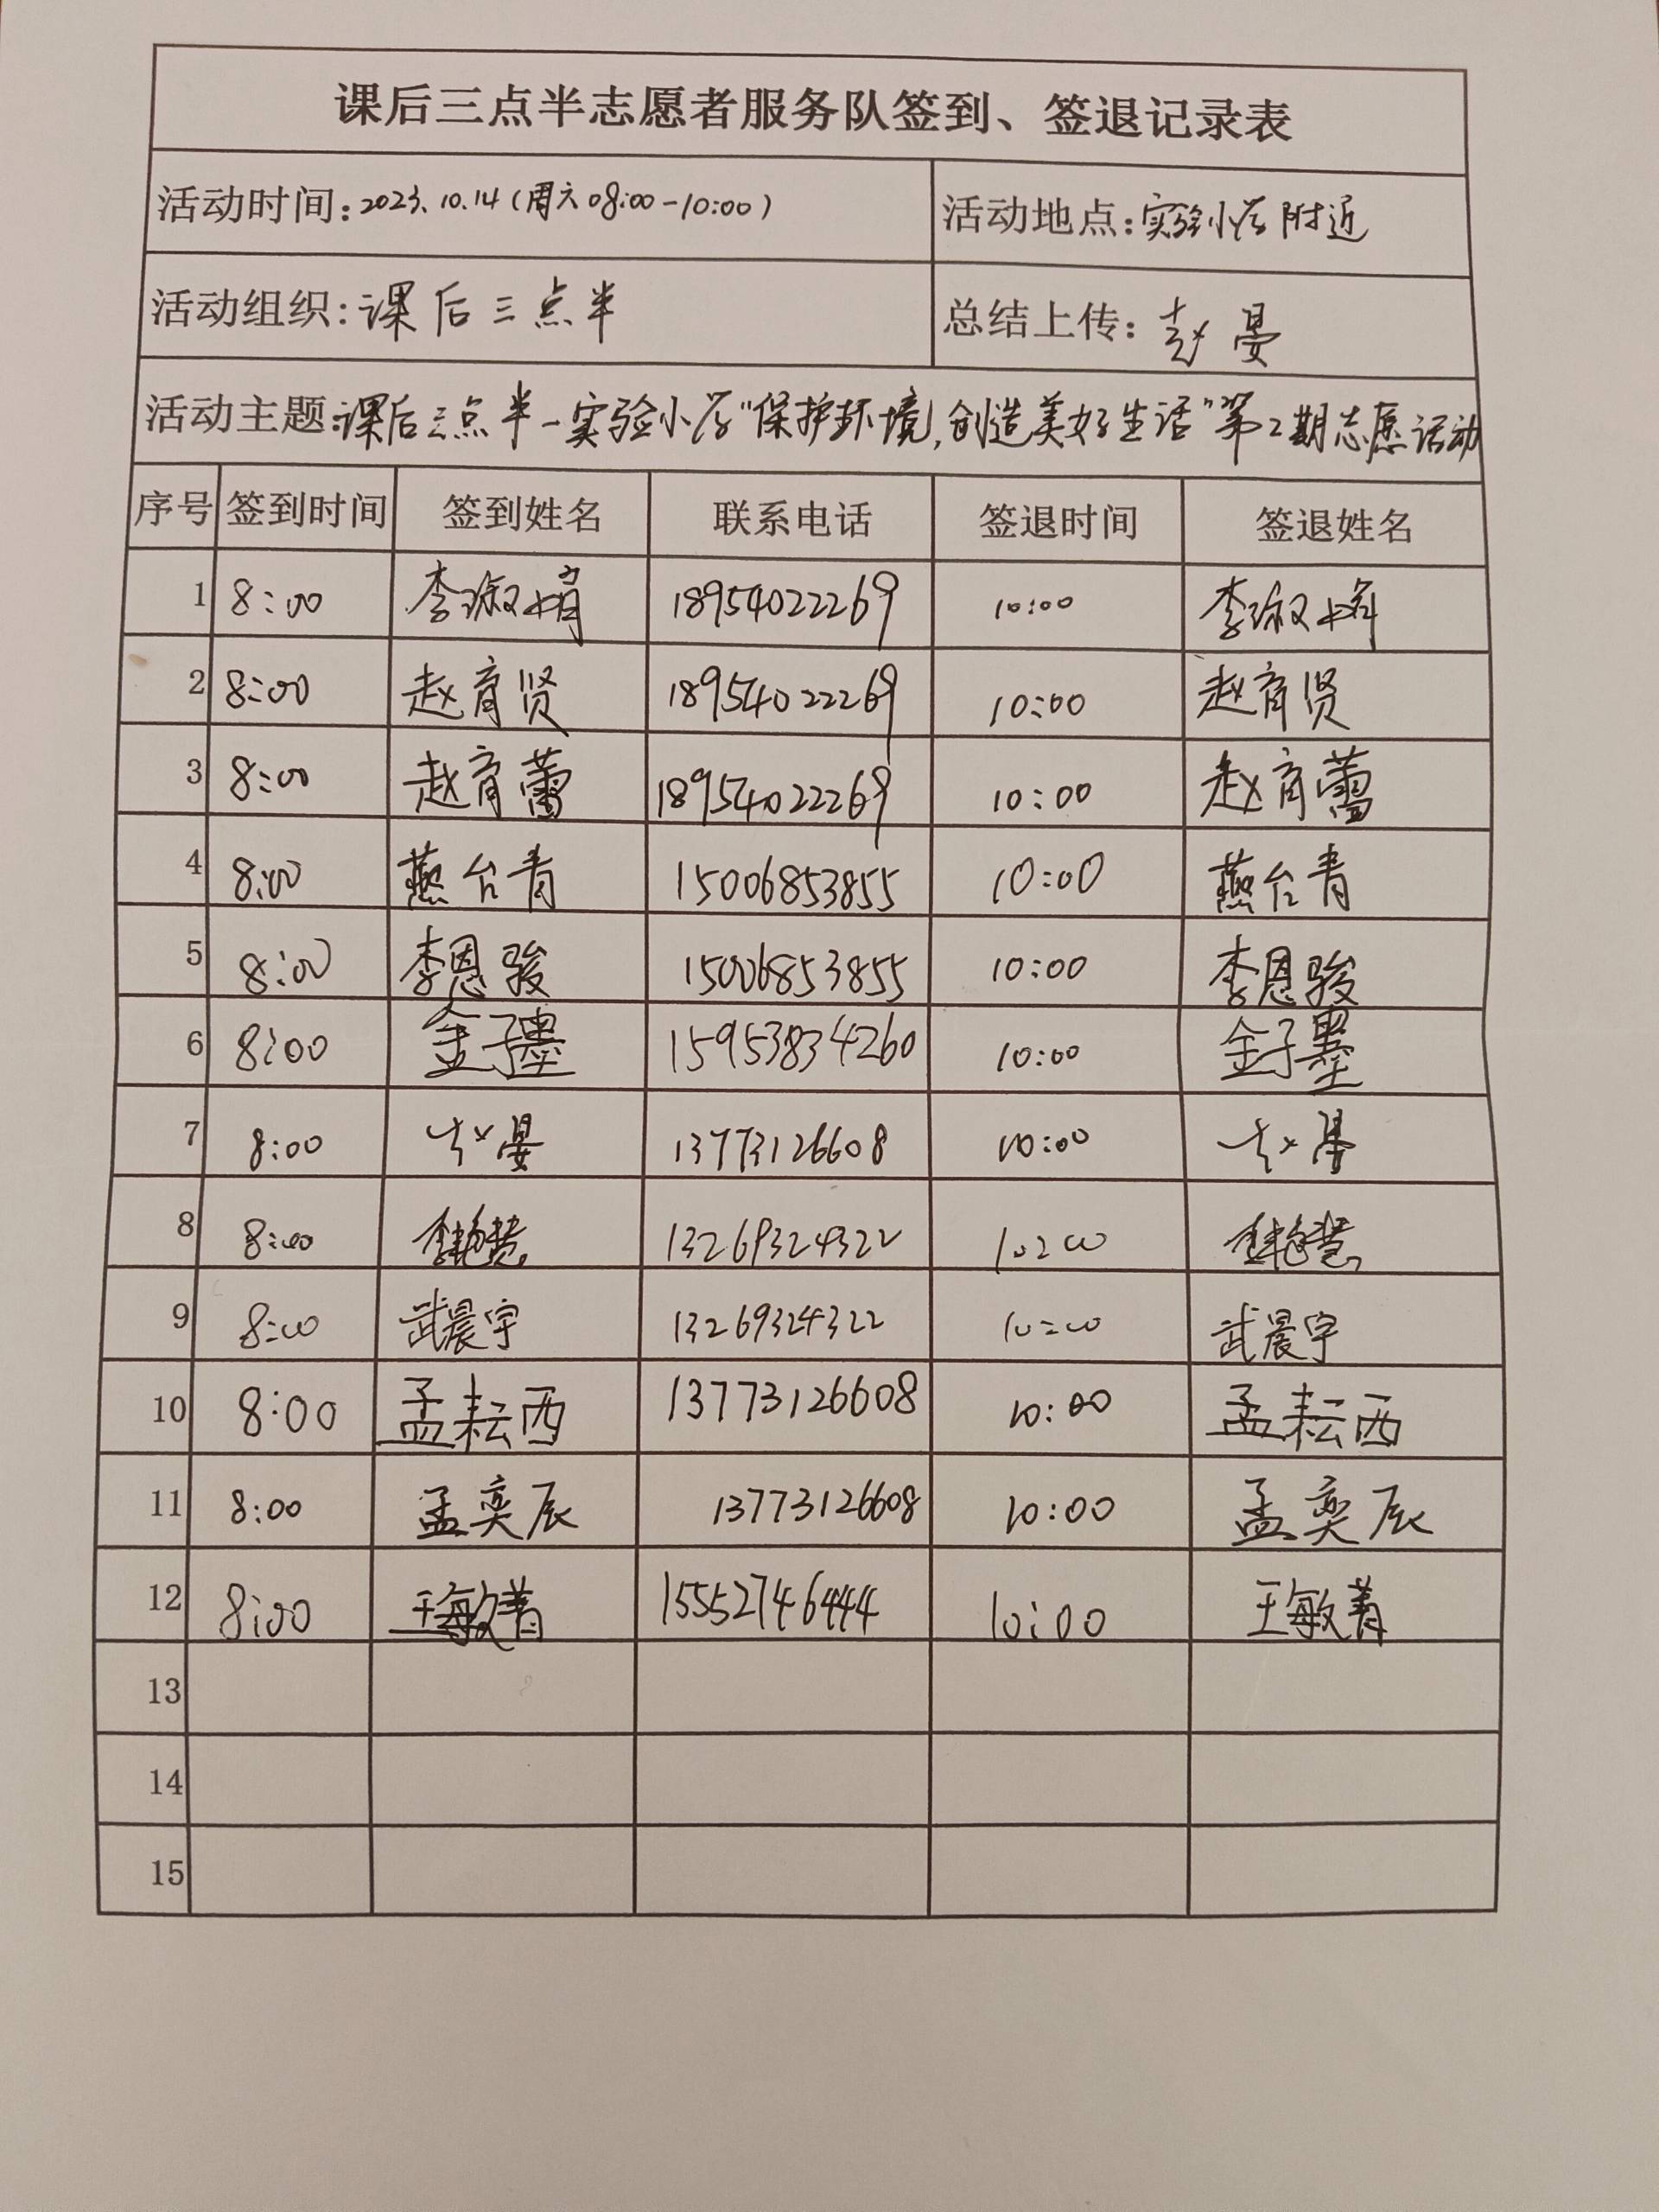 课后三点半志愿者服务队签到、签退记录表
活动时间:2023.10.14(周六08:00-10:00) 活动地点:实验小学附近
活动组织:课后三点半 总结上传:赵晏
活动主题:课后三点半-实验小学"保护环境,创造美好生活"第2期志愿活动
序号 签到时间 签到姓名 联系电话 签退时间 签退姓名
1 8:00 李淑娟 18954022269 10:00 李淑娟
2 8:00 赵育贤 18954022269 10:00 赵育贤
3 8:00 赵育蕾 18954022269 10:00 赵育蕾
4 8:00 燕台青 15006853855 10:00 燕台青
5 8:00 李恩骏 15006853855 10:00 李恩骏
6 8:00 金子墨 15953834260 10:00 金子墨
7 8:00 赵晏 13773126608 10:00 赵晏
8 8:00 13269324322 10:00
9 8:00 武晨宇 13269324322 10:00 武晨宇
10 8:00 孟耘西 13773126608 10:00 孟耘西
11 8:00 孟奕辰 13773126608 10:00 孟奕辰
12 8:00 王敏菁 15552746444 10:00 王敏菁
13
14
15